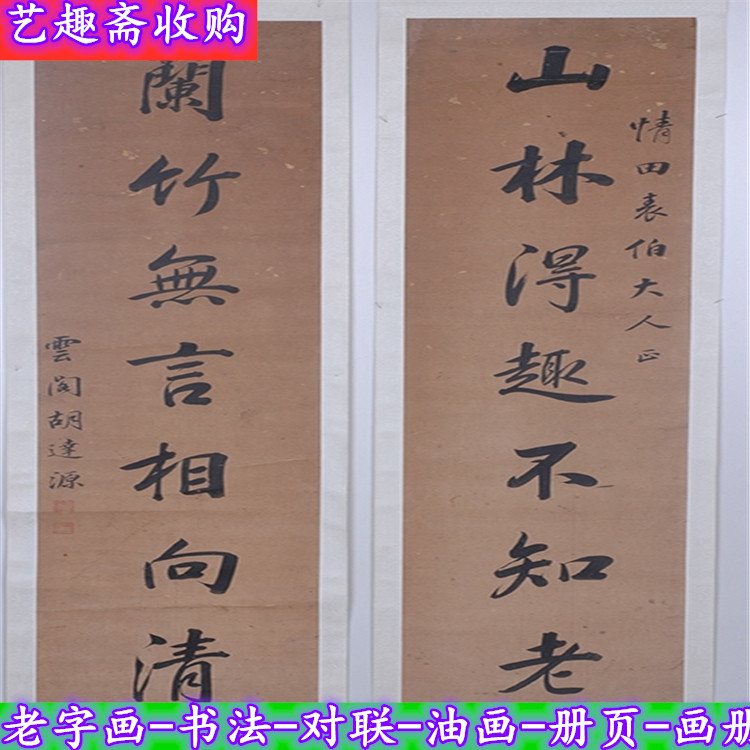 艺趣斋收购
情田表伯大人正
山林得趣不知老
蘭竹無言相向清
雲阁胡達源
老字画-书法-对联-油画-册页-画册